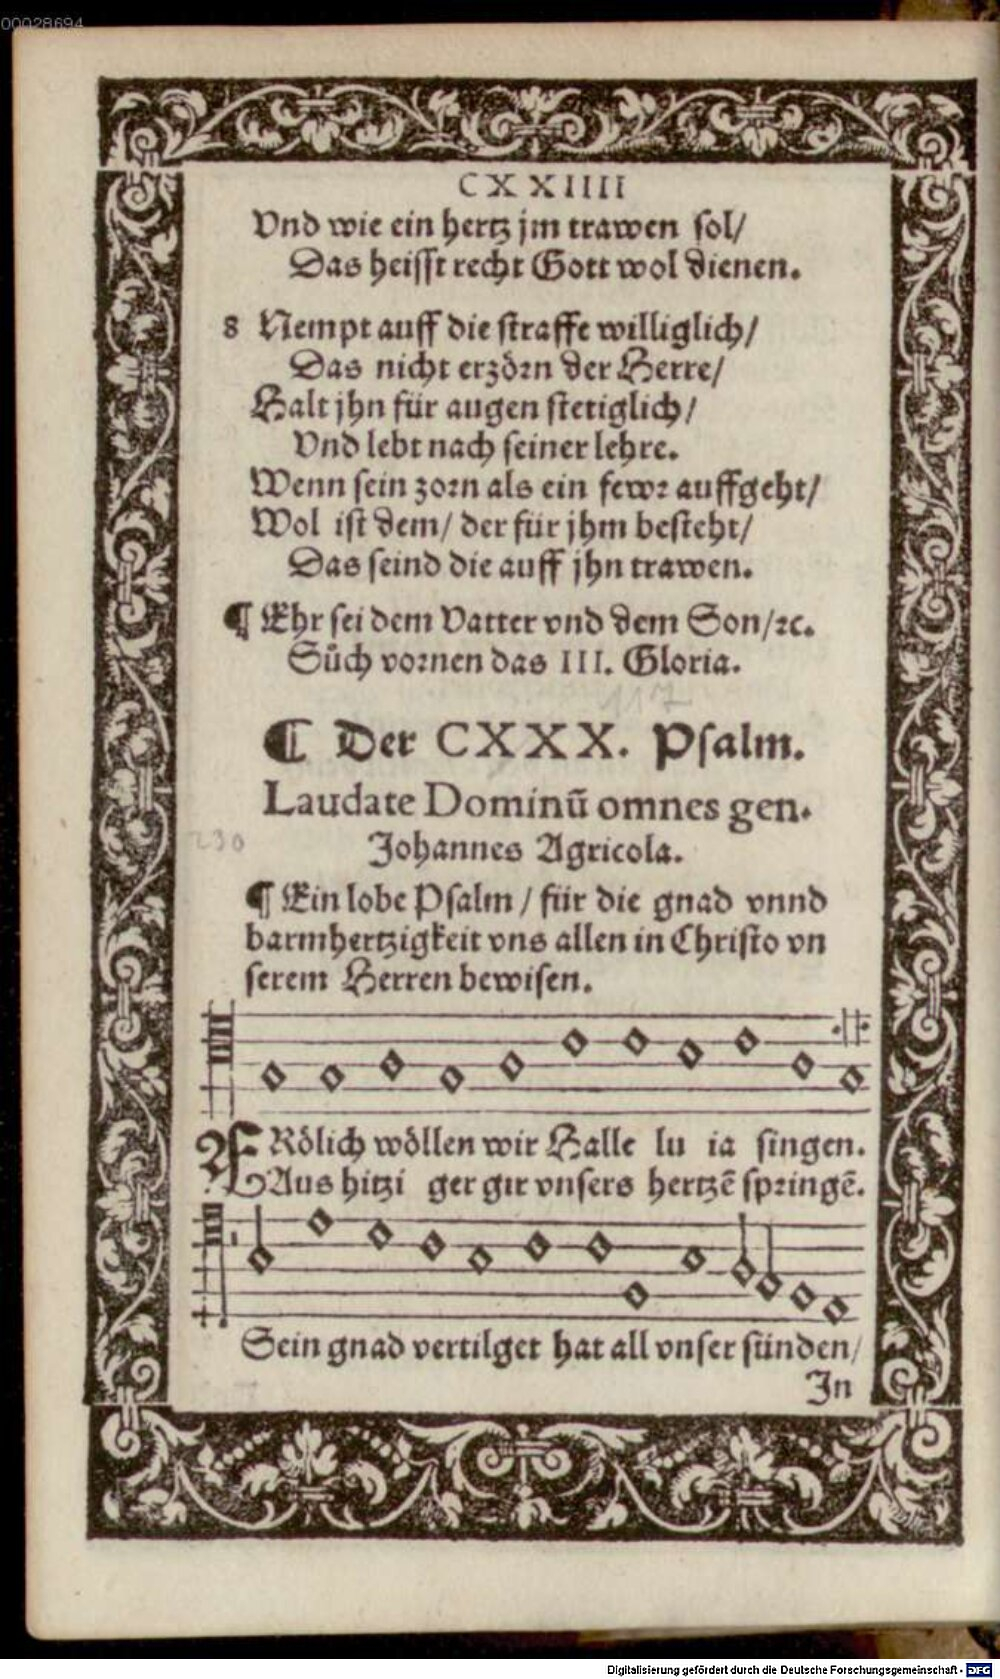 00028694
CXXIIII
Vnd wie ein hertz jm trawen sol/
Das heisst recht Gott wol dienen.
8 Nempt auff die straffe williglich/
Das nicht erzörn der Herre/
Halt jhn für augen stetiglich/
Vnd lebt nach seiner lehre.
Wenn sein zorn als ein fewr auffgeht/
Wol ist dem/ der für jhm besteht/
Das seind die auff jhn trawen.
¶ Ehr sei dem Vatter vnd dem Son/ꝛc.
Sůch vornen das III. Gloria.
117
¶ Der CXXX. Psalm.
Laudate Dominū omnes gen.
230
Johannes Agricola.
¶ Ein lobe Psalm / für die gnad vnnd
barmhertzigkeit vns allen in Christo vn
serem Herren bewisen.
FRölich wöllen wir Halle lu ia singen.
Aus hitzi ger gir vnsers hertzē springē.
Sein gnad vertilget hat all vnser sünden/
In
Digitalisierung gefördert durch die Deutsche Forschungsgemeinschaft - DFG